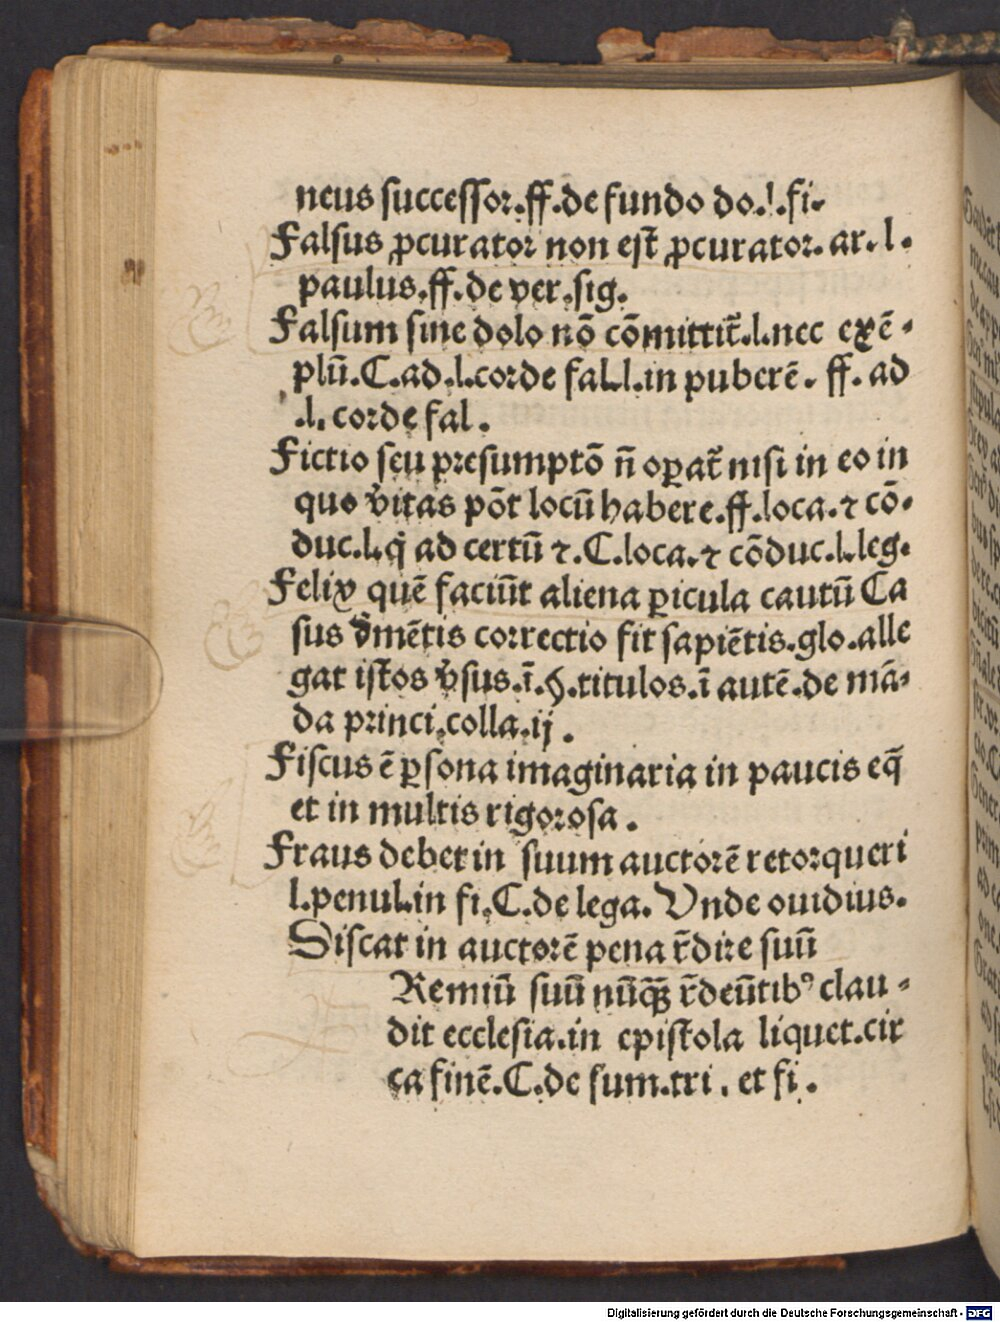 neus successor.ff.de fundo do.l.fi.
Falsus ꝓcurator non est ꝓcurator. ar. l.
paulus.ff.de ver.sig.
Falsum sine dolo nō cōmittit᷑.l.nec exē-
plū.C.ad.l.corde fal.l.in puberē. ff. ad
.l. corde fal.
Fictio seu presumptō n̄ oꝑat᷑ nisi in eo in
quo v̓itas pōt locū habere.ff.loca.⁊ cō-
duc.l.q̇ ad certū ⁊.C.loca.⁊ cōduc.l.leg.
Felix quē faciūt aliena ꝑicula cautū Ca
sus d̓mētis correctio fit sapiētis.glo.alle
gat istos v̓sus.ī.§.titulos.ī autē.de mā-
da princi.colla.ij.
Fiscus ē ꝑsona imaginaria in paucis eq̄
et in multis rigorosa.
Fraus debet in suum auctorē retorqueri
l.penul.in fi.C.de lega. Unde ouidius.
Discat in auctorē pena r̄dire suū
Remiū suū nūꝗꝫ r̄deūtibꝰ clau-
dit ecclesia.in epistola liquet.cir
ca finē.C.de sum.tri. et fi.
Digitalisierung gefördert durch die Deutsche Forschungsgemeinschaft - DFG